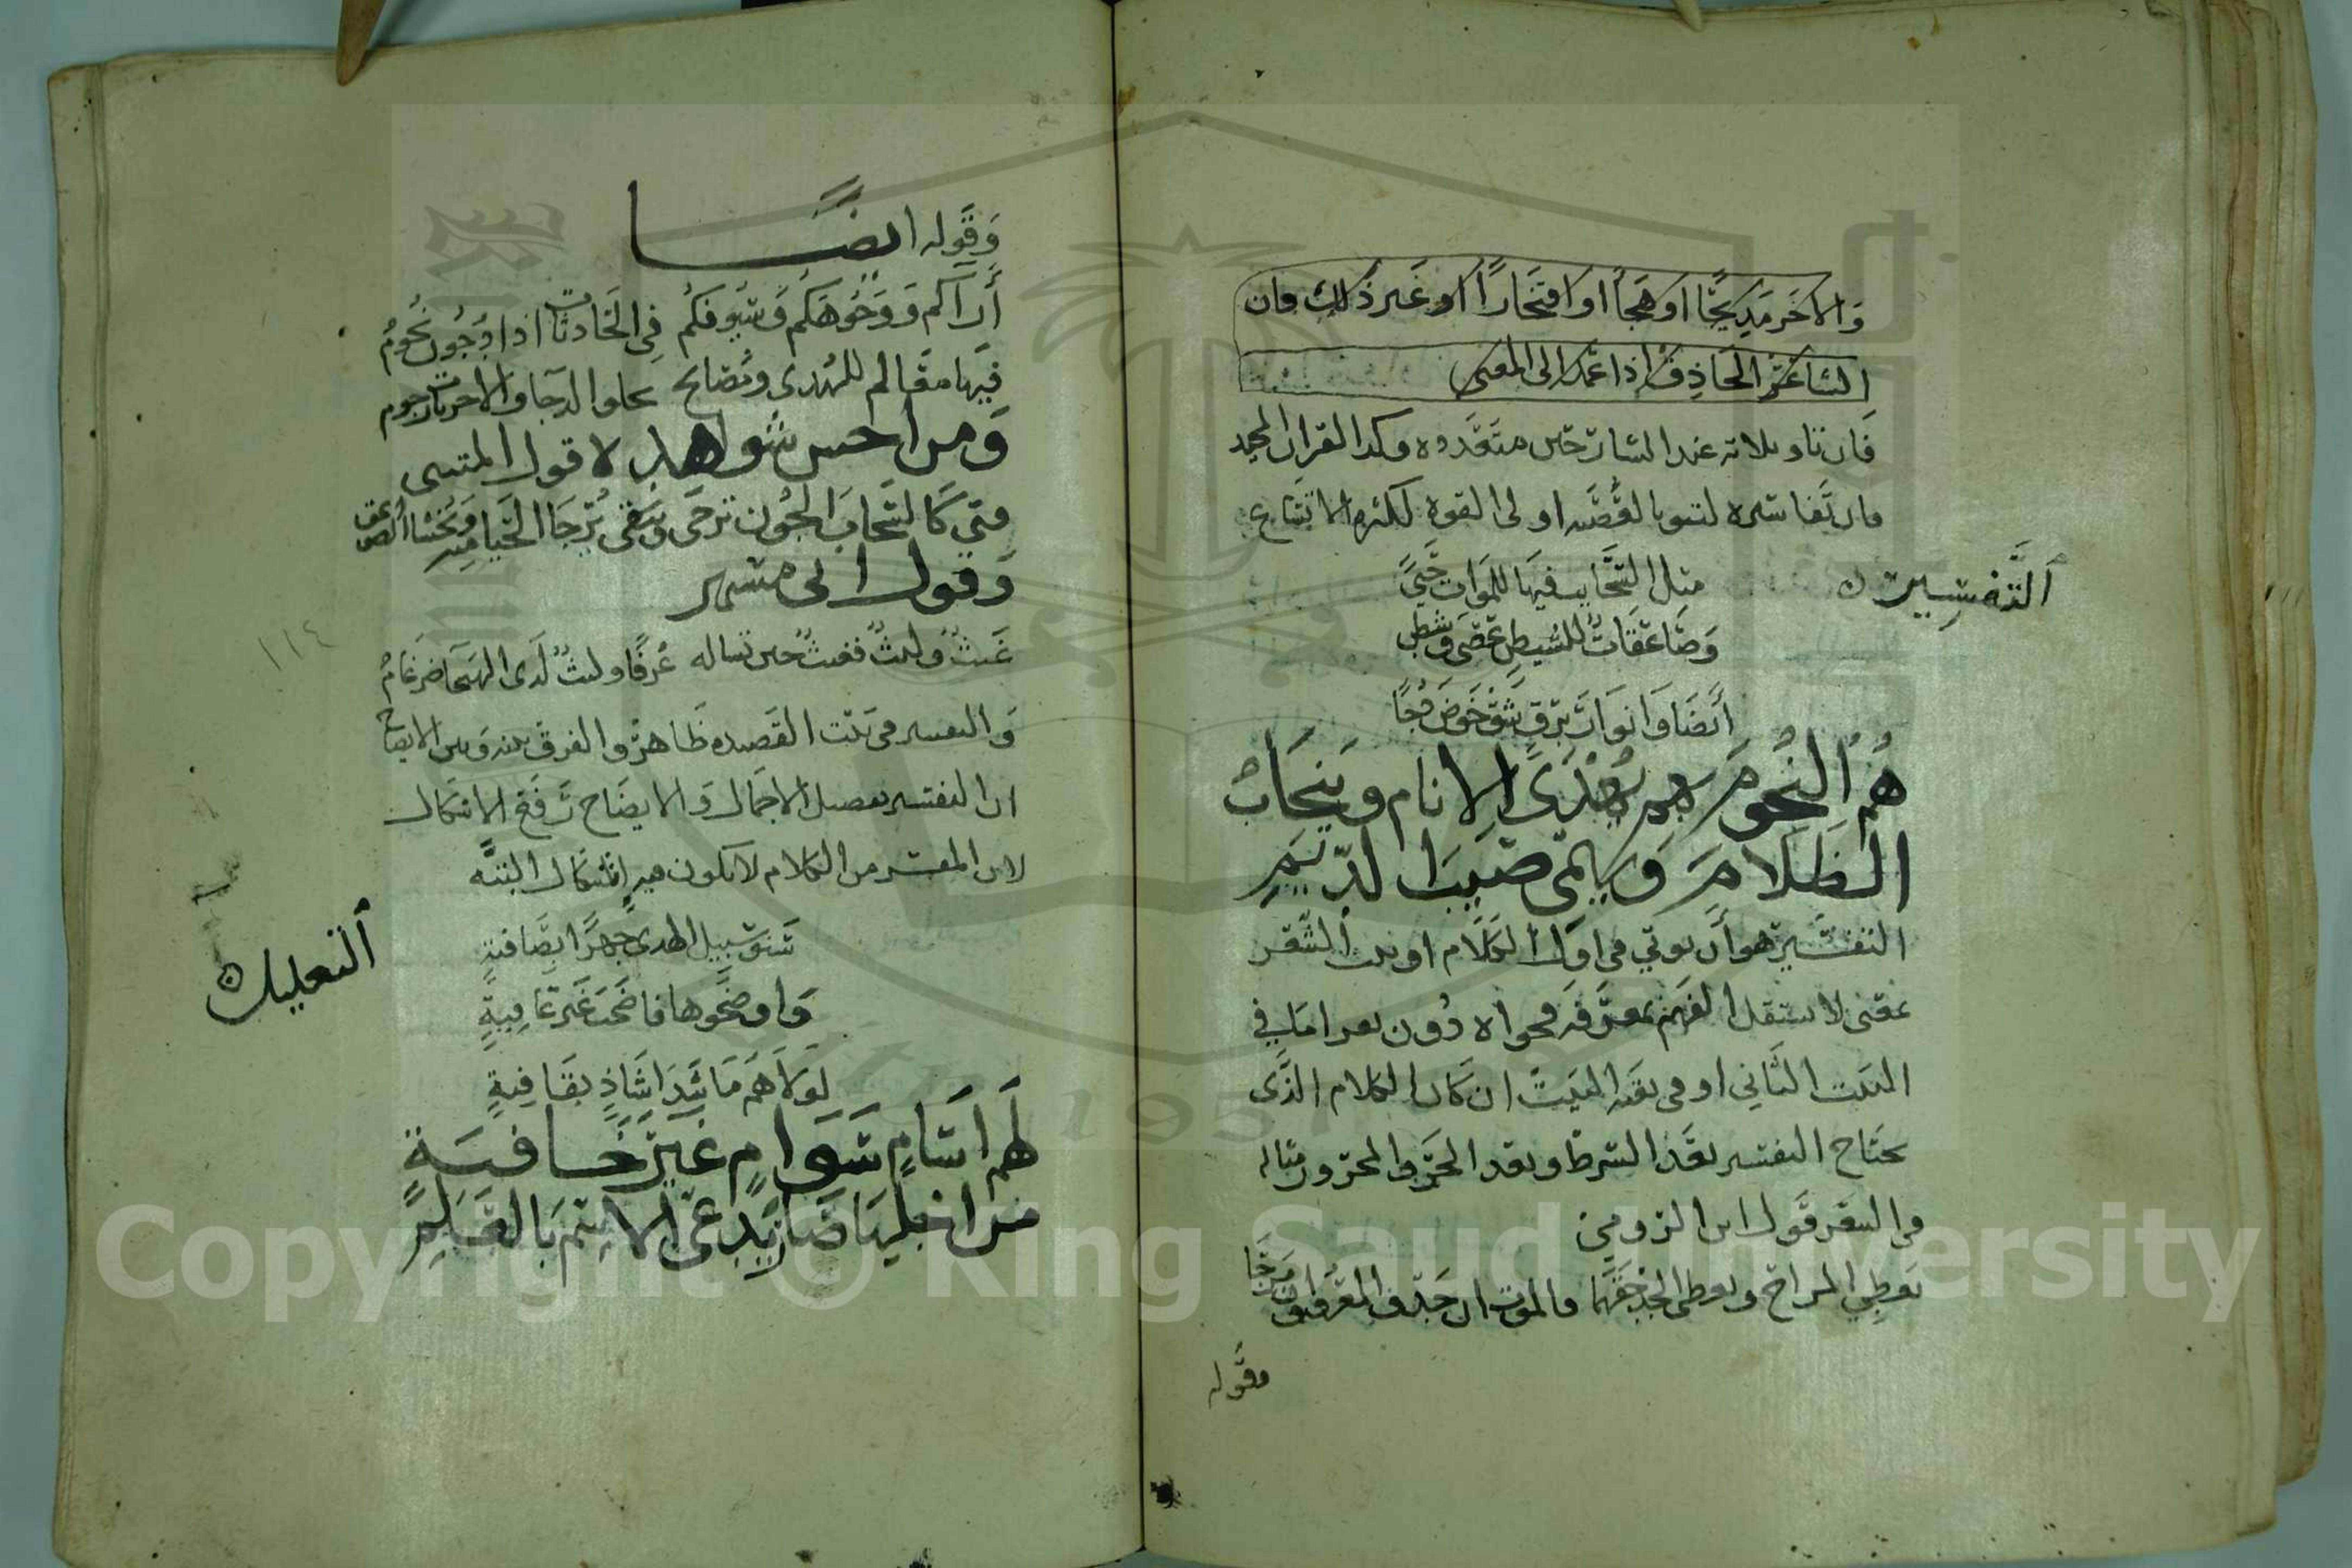 والاخر مديحًا او هجأً او افتخارًا او غير ذلك فان
الشاعر الحاذق اذا عمد الى المعنى
فان تاويلاته عند الشارحين متعدده وكذا القران المجيد
فان تفاسيره لتنوء بالعصبه اولى القوه لكثره الاتساع
التفسير
مثل السحايب فيها للموات حيً
وصاعقات للشيطين عصى وشطى
أيضا وانوات برق شق خوض دجا
هم النجوم بهم يُهدى الانام وينجاب
الظلام ويهمى صيب الديم
التفسير هو أن يوتي في اول الكلام او بيت الشعر
بمعنى لا يستقل الفهم بمعرفه فحواه دون بعد اما في
البيت الثاني او في بقيه البيت ان كان الكلام الذى
يحتاج التفسير بعد الشرط وبعد الجر والمجرور مثاله
في الشعر قول ابن الرومي
يعطي المراح ويعطى الجد حقهما فالموت ان جد والمعروف ان مزحا
فقوله
وقوله ايضًا
أراكم ووجوهكم وسيوفكم في الحادثات اذا دجون نجوم
فيها معالم للهدى ومصابح تجلو الدجا والاخريات رجوم
ومن احسن شواهده لا قول المتنبى
فتي كالسحاب الجون ترجى وتتقى يُرجا الحيا منه وتخشا الصواعق
وقول ابى مسهر
غيث وليث فغيث حين تساله عُرفًا وليث لدى الهيجا ضرغام
والتفسير في بيت القصيده ظاهر والفرق بينه وبين الايضاح
ان التفسير تفصيل الاجمال والايضاح رفع الاشكال
لان المفسر من الكلام لا يكون فيه اشكال البتّه
التعليل
شنو سبيل الهدى جهرًا بصافيةٍ
واوضحوها فاضحت غير عافيةٍ
لولا هم ما شدا شاذٍ بقافيةٍ
لهم اسامٍ سوامٍ غير خافيةٍ
من اجلها صار يُدعى الاسم بالعلم
١١٤
Copyright © King Saud University
1957